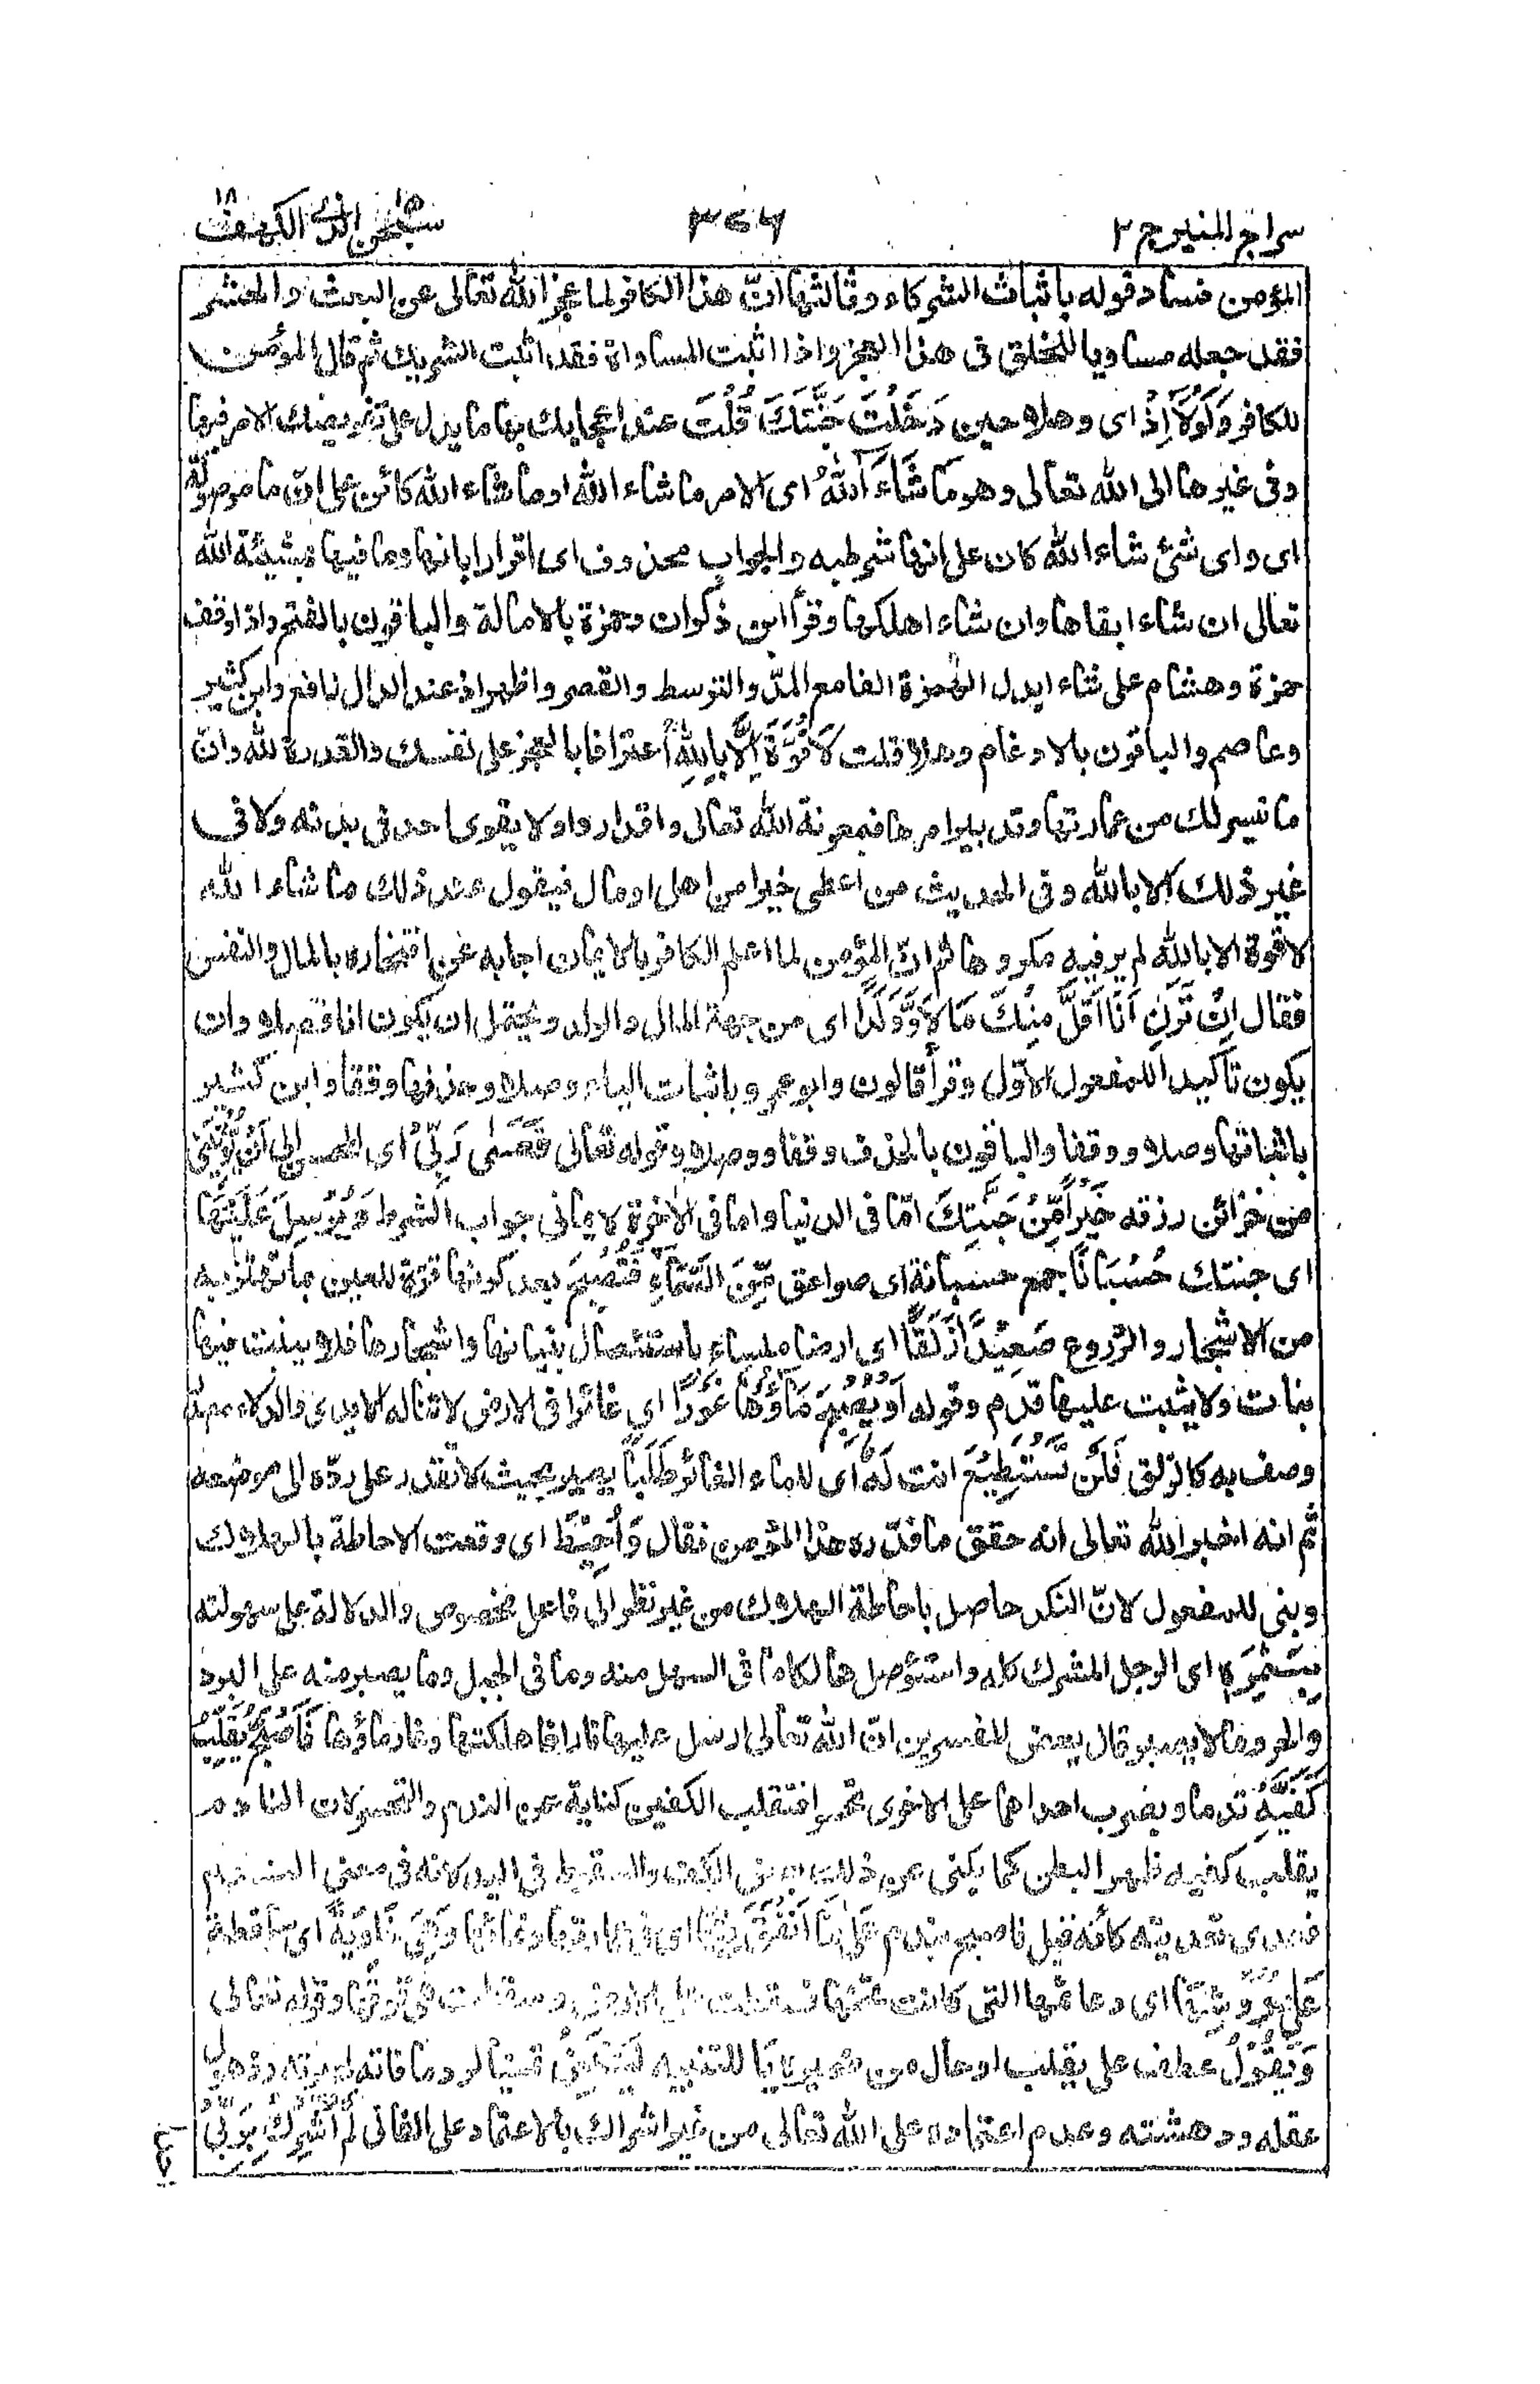 سراج المنير ج ٢
٣٤٦
سبحن الذى ١٥ الكهف ١٨
المؤمن فساد قوله باثبات الشركاء وثالثها انّ هذا الكافر لما عجز الله تعالى عن البعث والحشر
فقد جعله مساويا للخلق فى هذا العجز واذا اثبت المساواة فقد اثبت الشريك ثم قال المؤمن
للكافر وَلَوْلَا اِذْ اى وهلا حين دَخَلْتَ جَنَّتَكَ قُلْتَ عند اعجابك بها ما يدل على تفويضك الامر فيها
وفى غيرها الى الله تعالى وهو مَا شَاءَ اللّٰهُ اى الامر ما شاء الله او ما شاء الله كائن على انّ ما موصولة
اى واى شئ شاء الله كان على انها شرطيه والجواب محذوف اى اقرارا بانها وما فيها بمشيئة الله
تعالى ان شاء ابقاها وان شاء اهلكها وقرأ ابن ذكوان وحمزة بالامالة والباقون بالفتح واذا وقف
حمزة وهشام على شاء ابدل الهمزة الفا مع المدّ والتوسط والقصر واظهر اذ عند الدال نافع وابن كثير
وعاصم والباقون بالادغام وهلا قلت لَا قُوَّةَ اِلَّا بِاللّٰهِ اعترافا بالعجز على نفسك والقدرة لله وانّ
ما تيسر لك من عمارتها وتدبيرامرها فبمعونة الله تعالى واقداره ولا يقوى احد فى بدنه ولا فى
غير ذلك الا بالله وفى الحديث من اعطى خيرا من اهل او مال فيقول عند ذلك ما شاء الله
لا قوة الا بالله لم ير فيه مكروها ثم انّ المؤمن لما اعلم الكافر بالايمان اجابه عن افتخاره بالمال والنفس
فقال اِنْ تَرَنِ اَنَا اَقَلَّ مِنْكَ مَالًا وَّوَلَدًا اى من جهة المال والولد ويحتمل ان يكون انا فصلا وان
يكون تأكيدا للمفعول الاوّل وقرأ قالون وابو عمرو باثبات الياء وصلا وحذفها وقفا وابن كثير
باثباتها وصلا ووقفا والباقون بالحذف وقفا ووصلا وقوله تعالى فَعَسٰى رَبِّىْ اى المحسن الى اَنْ يُّؤْتِيَنِ
من خزائن رزقه خَيْرًا مِّنْ جَنَّتِكَ امّا فى الدنيا واما فى الآخرة لايمانى جواب الشرط وَيُرْسِلَ عَلَيْهَا
اى جنتك حُسْبَانًا جمع حسبانة اى صواعق مِّنَ السَّمَاءِ فَتُصْبِحَ بعد كونها قرّة للعين بما تهتز به
من الاشجار والزروع صَعِيْدًا زَلَقًا اى ارضا ملساء باستئصال بنيانها واشجارها فلا ينبت فيها
نبات ولا يثبت عليها قدم وقوله اَوْ يُصْبِحَ مَاؤُهَا غَوْرًا اى غائرا فى الارض لا تناله الايدى والدلاء مصدر
وصف به كالزلق فَلَنْ تَسْتَطِيْعَ انت لَهٗ اى للماء الغائر طَلَبًا يصير بحيث لا تقدر على ردّه الى موضعه
ثم انه اخبر الله تعالى انه حقق ما قدّره هذا المؤمن فقال وَاُحِيْطَ اى وقعت الاحاطة بالهلاك
وبنى للمفعول لانّ النكد حاصل باحاطة الهلاك من غير نظر الى فاعل مخصوص والدلالة على سهولته
بِثَمَرِهٖ اى الرجل المشرك كله واستؤصل هالكا ما فى السهل منه وما فى الجبل وما يصبر منه على البرد
والحر وما لا يصبر وقال بعض المفسرين انّ الله تعالى ارسل عليها نارا فاهلكتها وغار ماؤها فَاَصْبَحَ يُقَلِّبُ
كَفَّيْهِ ندما ويضرب احداهما على الاخرى تحسرا فتقلب الكفين كناية عن الندم والتحسر لان النادم
يقلب كفيه ظهرا لبطن كما يكنى عن ذلك بعض الكف والسقوط فى اليد لانه فى معنى الندم
فعدى تعديته كأنه قيل فاصبح يندم عَلٰى مَا اَنْفَقَ فِيْهَا اى فى عمارتها ونمائها وَهِىَ خَاوِيَةٌ اى ساقطة
عَلٰى عُرُوْشِهَا اى دعائمها التى كانت تحتها فسقطت على الارض وسقطت هى فوقها وقوله تعالى
وَيَقُوْلُ عطف على يقلب او حال من ضميره يَا للتنبيه لَيْتَنِىْ تمنيا لرد ما فاته لحيرته وذهول
عقله ودهشته وعدم اعتماده على الله تعالى من غير اشراك بالاعتماد على الفانى لَمْ اُشْرِكْ بِرَبِّىْ